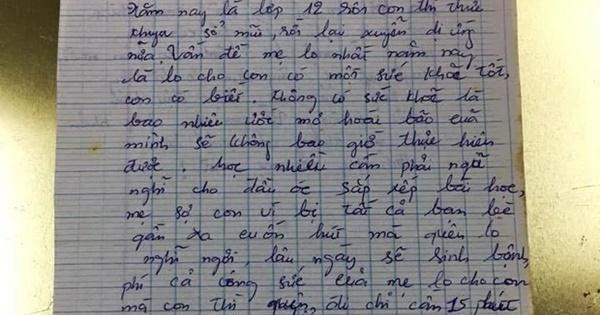 Năm nay là lớp 12 rồi con thì thức
khuya sổ mũi, rồi lại xuyễn dị ứng
nữa. Vấn đề mẹ lo nhất năm nay
là lo cho con có một sức khoẻ tốt,
con có biết. Không có sức khoẻ là
bao nhiêu ước mơ hoài bão của
mình sẽ không bao giờ thực hiện
được. học nhiều cần phải ngủ
nghỉ cho đầu óc sắp xếp bài học,
mẹ sợ con vì bị tất cả bạn bè
gần xa cuốn hút mà quên lo
nghỉ ngơi, lâu ngày sẽ sinh bệnh,
phí cả công sức của mẹ lo cho con
mà con thì quên, dù chỉ cần 15 phút